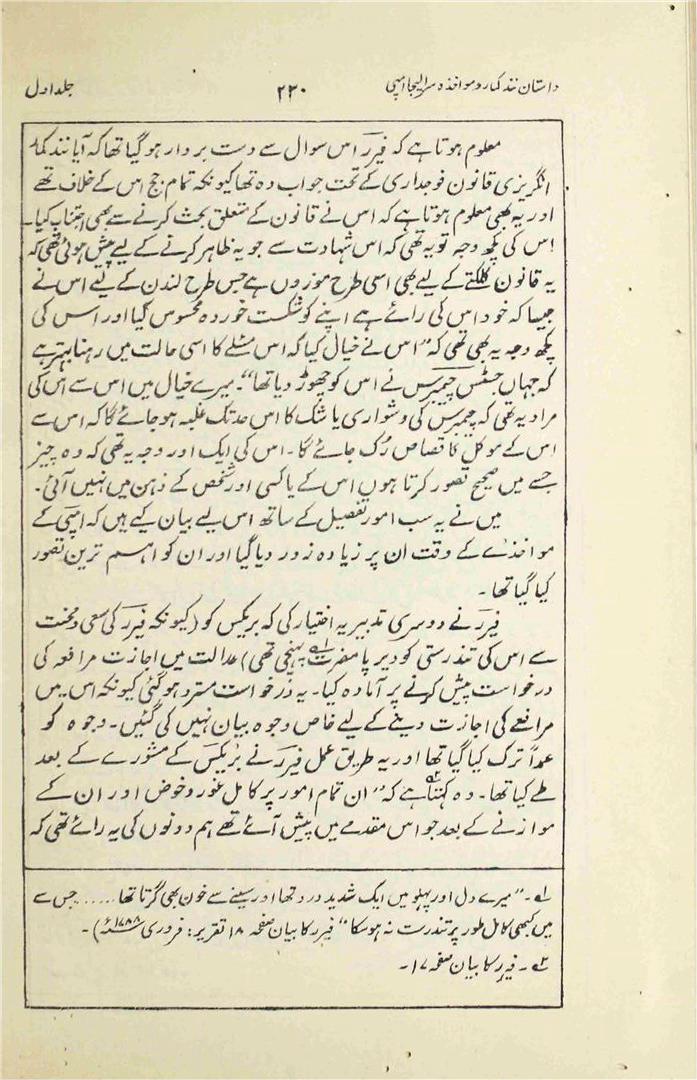 داستان نند کمار و مواخذہ سر الیجا امپی ۲۳۰ جلد اول
معلوم ہوتا ہے کہ فیرر اس سوال سے دست بردار ہو گیا تھا کہ آیا نند کمار
انگریزی قانون فوجداری کے تحت جواب دہ تھا کیونکہ تمام جج اس کے خلاف تھے
اور یہ بھی معلوم ہوتا ہے کہ اس نے قانون کے متعلق بحث کرنے سے بھی اجتناب کیا۔
اس کی کچھ وجہ تو یہ تھی کہ اس شہادت سے جو یہ ظاہر کرنے کے لیے پیش ہوئی تھی کہ
یہ قانون کلکتے کے لیے بھی اسی طرح موزوں ہے جس طرح لندن کے لیے اس نے
جیسا کہ خود اس کی رائے ہے اپنے کو شکست خوردہ محسوس کیا اور اس کی
کچھ وجہ یہ بھی تھی کہ "اس نے خیال کیا کہ اس مسئلے کا اسی حالت میں رہنا بہتر ہے
کہ جہاں جسٹس چیمبرس نے اس کو چھوڑ دیا تھا"۔ میرے خیال میں اس سے اس کی
مراد یہ تھی کہ چیمبرس کی دشواری یا شک کا اس حد تک غلبہ ہو جائے گا کہ اس سے
اس کے موکل کا قصاص رُک جائے گا۔ اس کی ایک اور وجہ یہ تھی کہ وہ چیز
جسے میں صحیح تصور کرتا ہوں اس کے یا کسی اور شخص کے ذہن میں نہیں آئی۔
میں نے یہ سب امور تفصیل کے ساتھ اس لیے بیان کیے ہیں کہ امپی کے
مواخذے کے وقت ان پر زیادہ زور دیا گیا اور ان کو اہم ترین تصور
کیا گیا تھا۔
فیرر نے دوسری تدبیر یہ اختیار کی کہ بریکس کو (کیونکہ فیرر کی سعی و محنت
سے اس کی تندرستی کو دیر پا مضرت پہنچی تھی)۱ عدالت میں اجازت مرافعہ کی
درخواست پیش کرنے پر آمادہ کیا۔ یہ درخواست مسترد ہو گئی کیونکہ اس میں
مرافعے کی اجازت دینے کے لیے خاص وجوہ بیان نہیں کی گئیں۔ وجوہ کو
عمداً ترک کیا گیا تھا اور یہ طریق عمل فیرر نے بریکس کے مشورے کے بعد
طے کیا تھا۔ وہ کہتا۲ ہے کہ "ان تمام امور پر کامل غور و خوض اور ان کے
موازنے کے بعد جو اس مقدمے میں پیش آئے تھے ہم دونوں کی یہ رائے تھی کہ
۱۔ "میرے دل اور پہلو میں ایک شدید درد تھا اور سینے سے خون بھی گرتا تھا ...... جس سے
میں کبھی کامل طور پر تندرست نہ ہو سکا" فیرر کا بیان صفحہ ۱۸ تقریر: فروری ۱۷۸۸ء)۔
۲۔ فیرر کا بیان صفحہ ۱۷۔